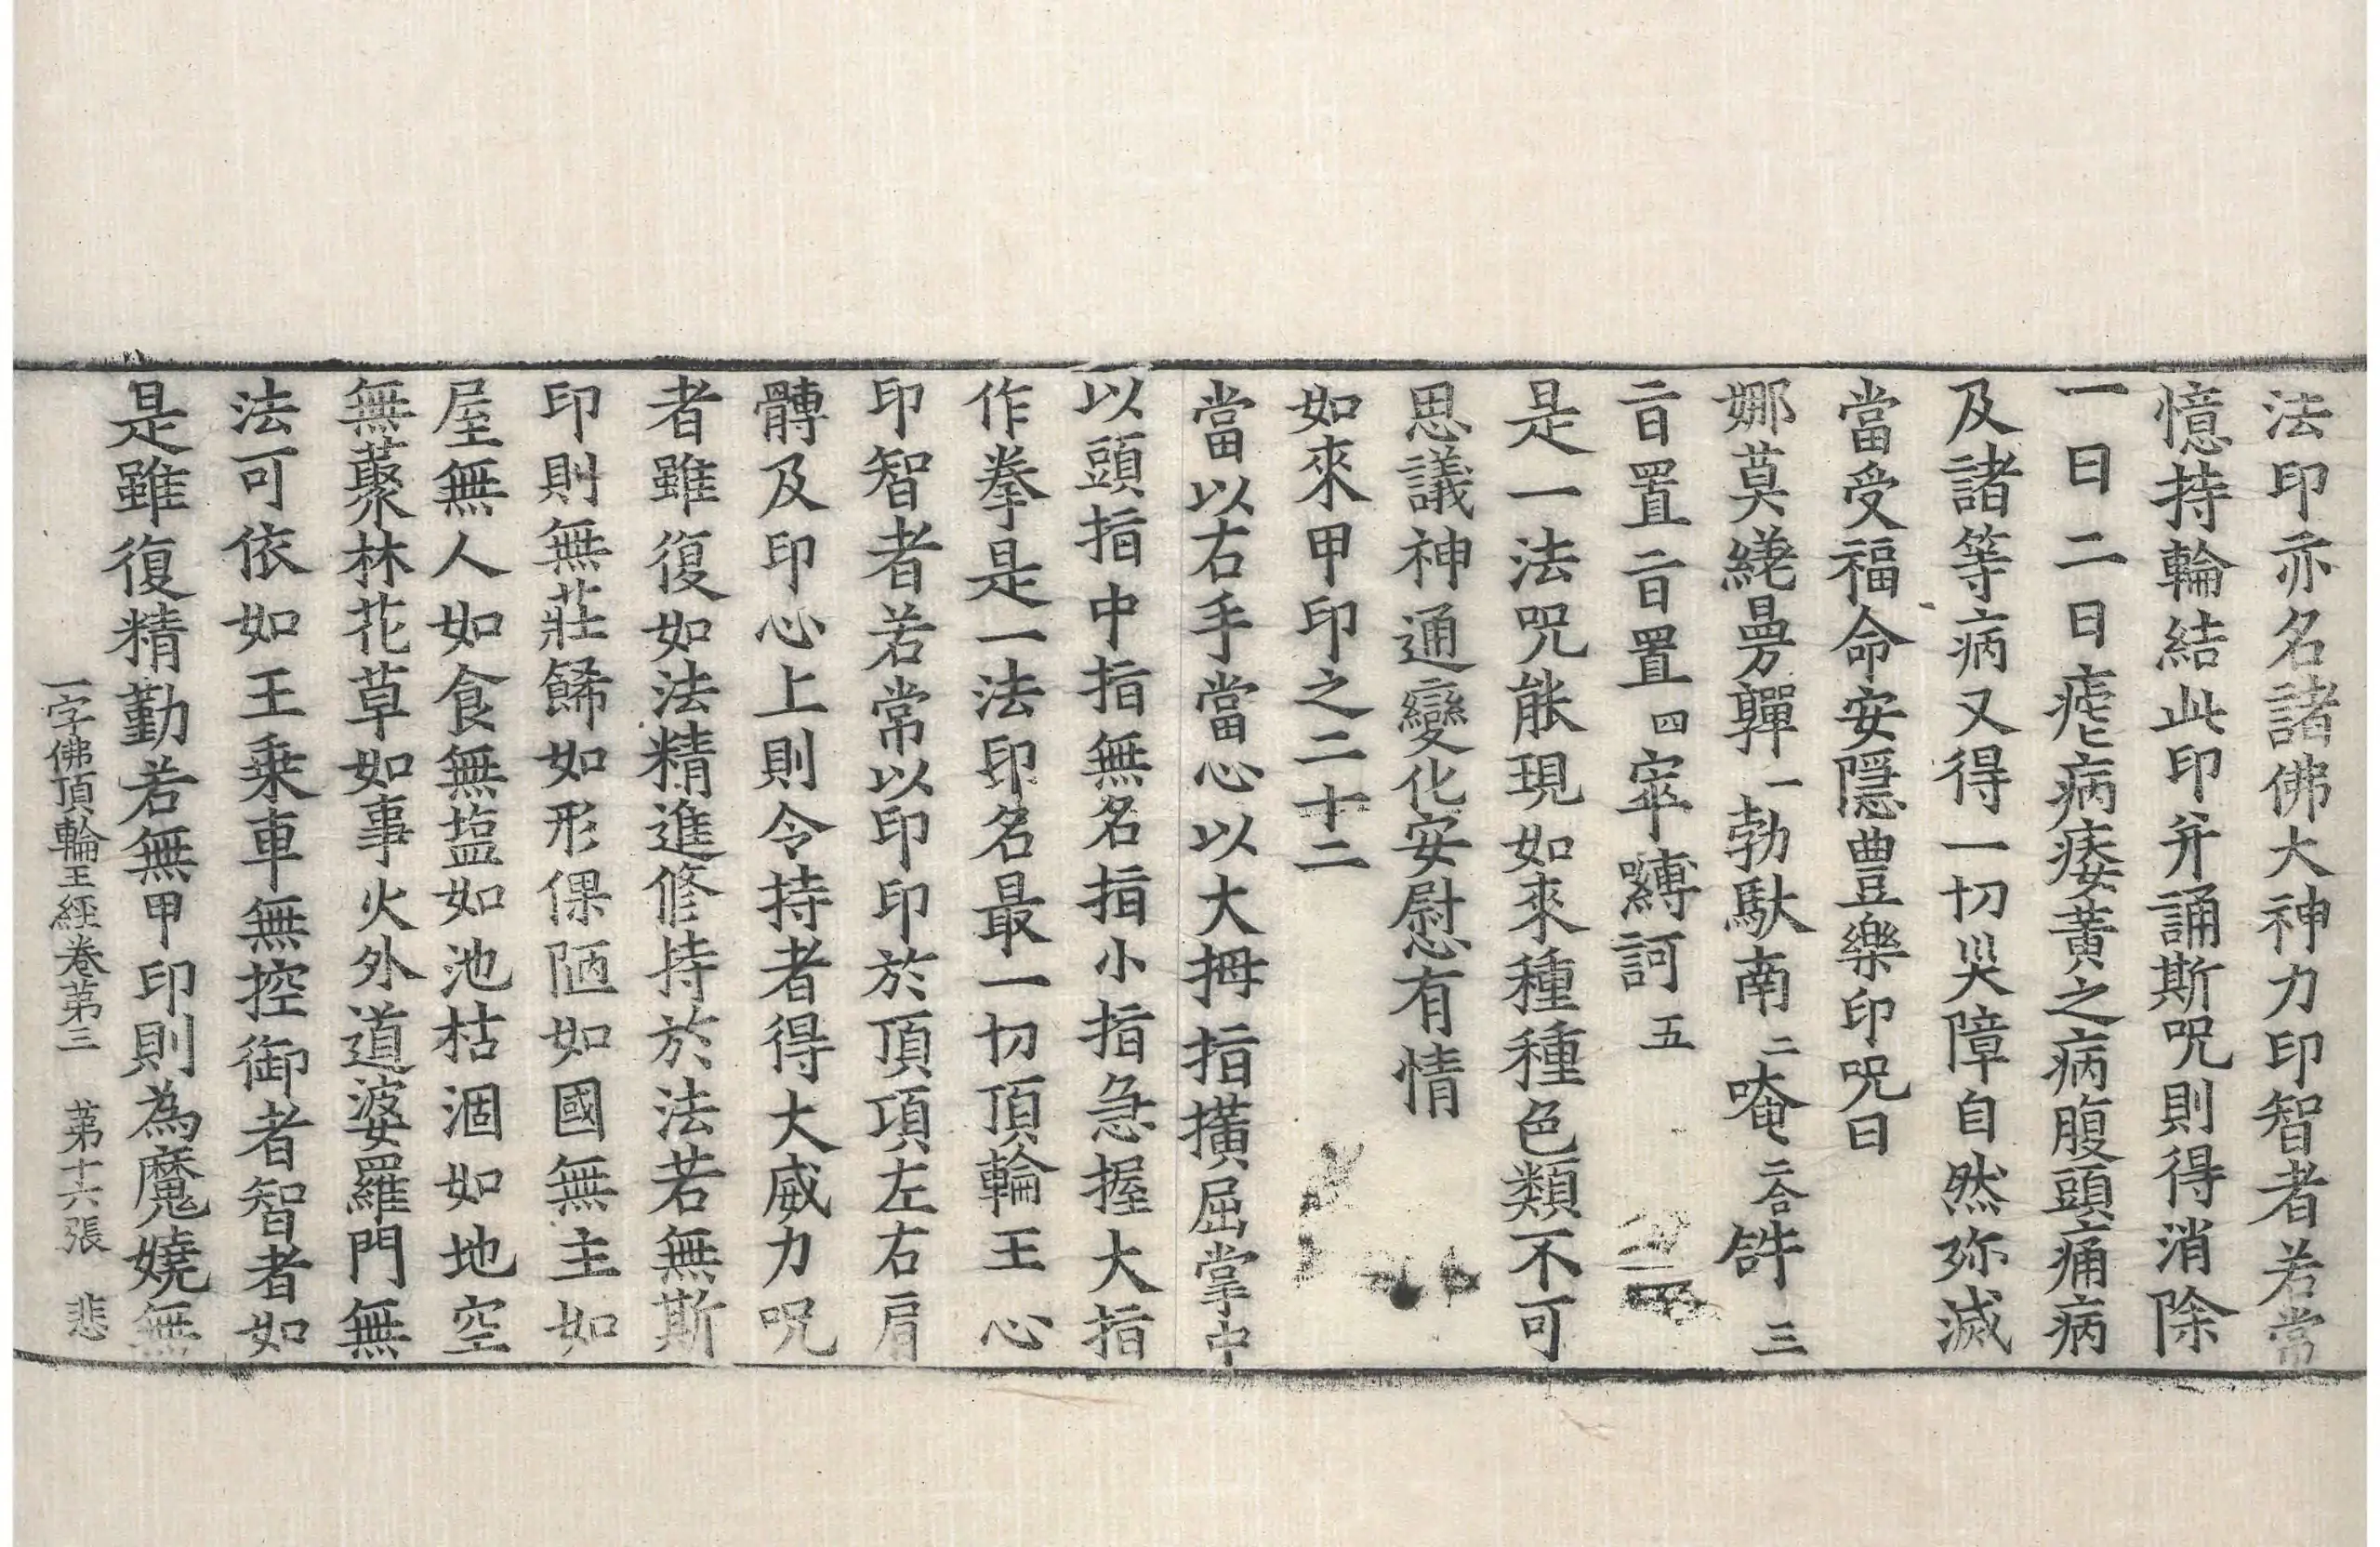 法印亦名諸佛大神力印智者若常
憶持輪結此印并誦斯呪則得消除
一日二日瘧病痿黃之病腹頭痛病
及諸等病又得一切災障自然弥滅
當受福命安隱豊樂印呪曰
娜莫繞曼亸一勃馱南二唵二合𤙖三
暜置暜置四窣囀訶五
是一法呪能現如來種種色類不可
思議神通變化安慰有情
如來甲印之二十二
當以右手當心以大拇指撗屈掌中
以頭指中指無名指小指急握大指
作拳是一法印名最一切頂輪王心
印智者若常以印印於頂項左右肩
髆及印心上則令持者得大威力呪
者雖復如法精進修持於法若無斯
印則無莊餙如形倮陋如國無主如
屋無人如食無塩如池枯涸如地空
無藂林花草如事火外道婆羅門無
法可依如王乗車無控御者智者如
是雖復精勤若無甲印則為魔嬈無
一字佛頂輪王經卷第三 第十六張 悲